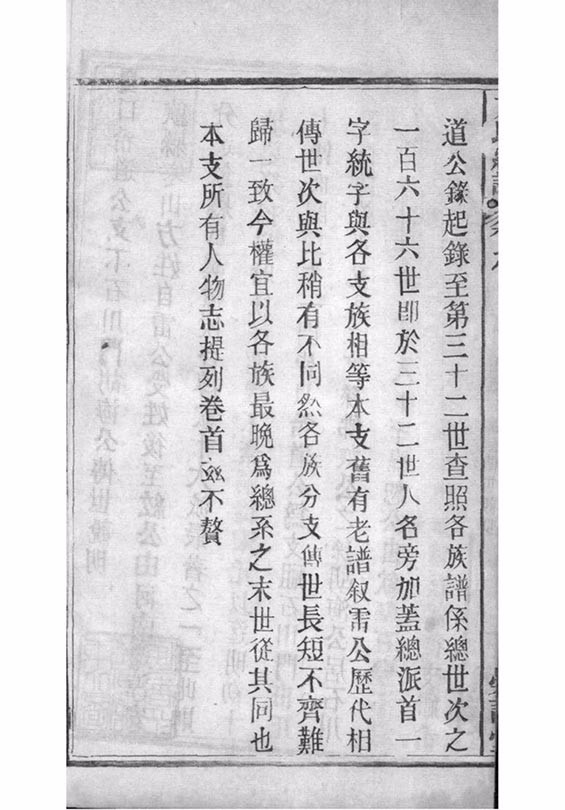 道公錄起錄至第三十二世查照各族譜係總世次之
一百六十六世卽於三十二世人名旁加蓋總派首一
字統字與各支族相等本支舊有老譜叙雷公歷代相
傳世次與比稍有不同然各族分支傳世長短不齊難
歸一致今權宜以各族最晚爲總系之末世從其同也
本支所有人物志提列卷首玆不贅